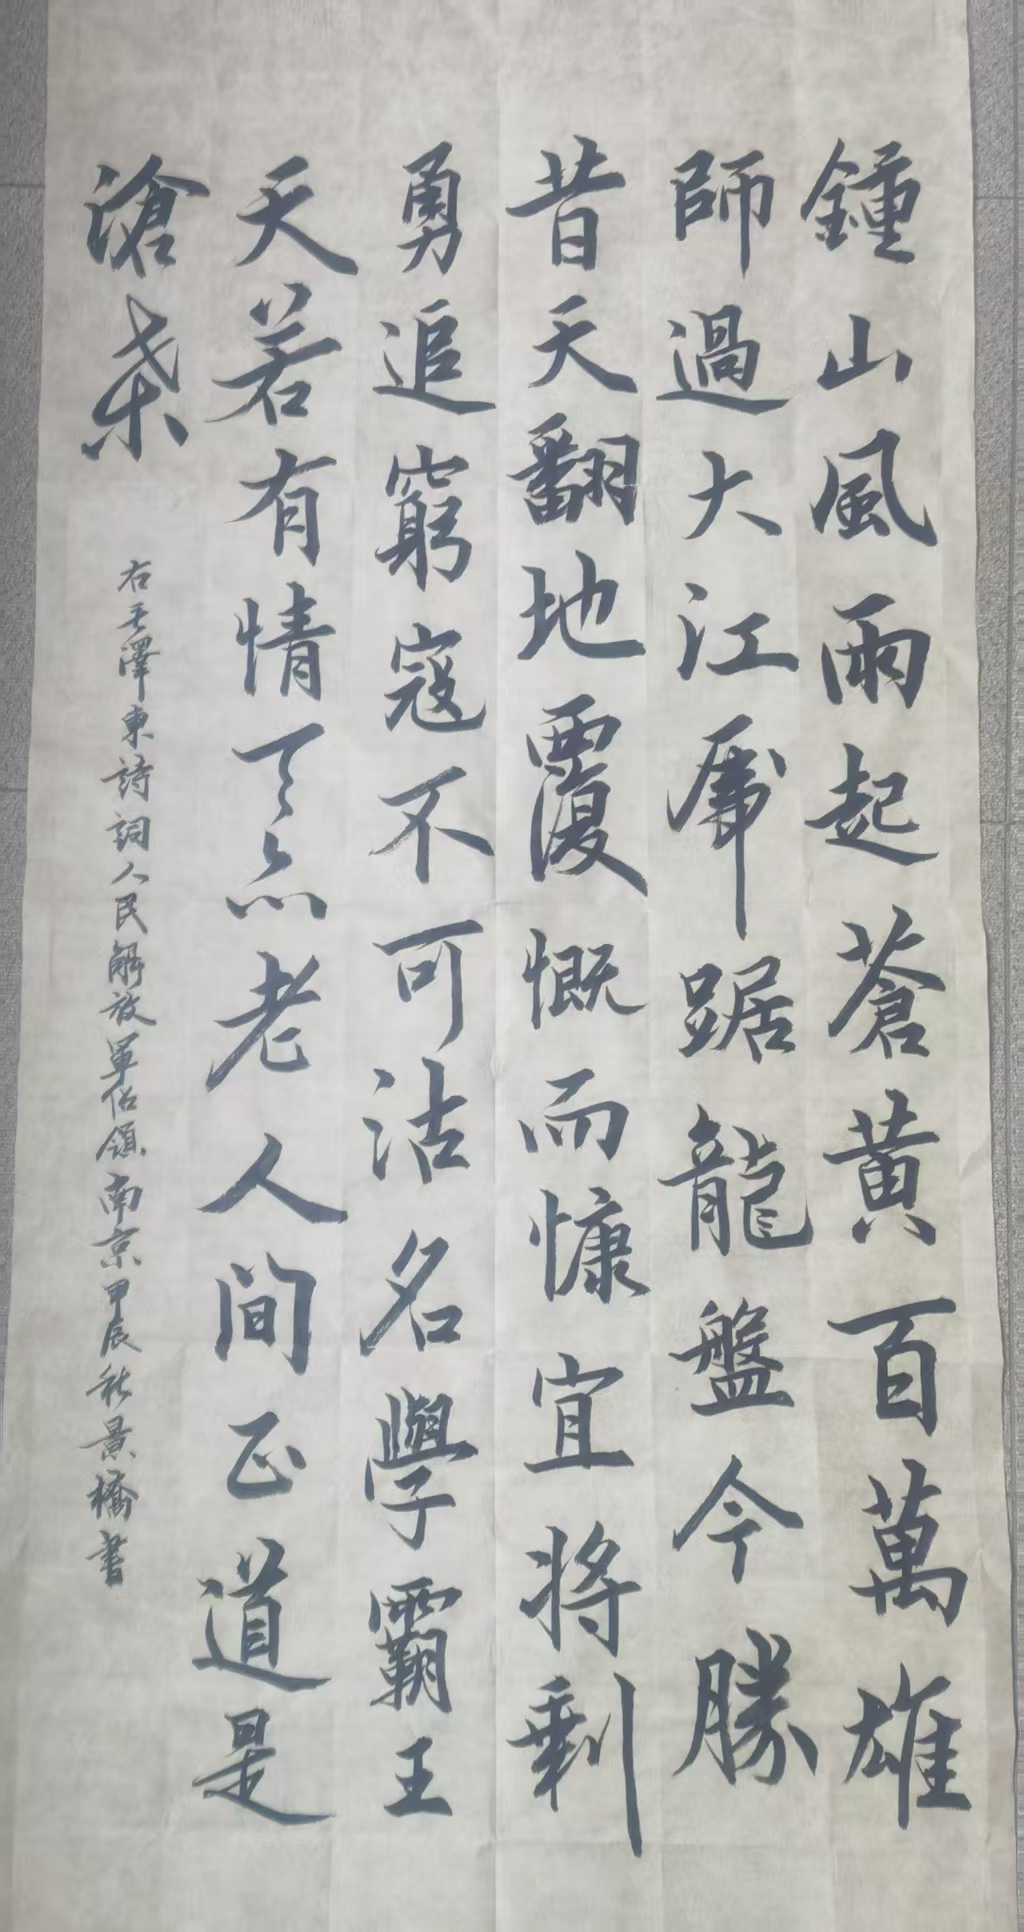 鍾山風雨起蒼黃百萬雄
師過大江虎踞龍盤今勝
昔天翻地覆慨而慷宜將剩
勇追窮寇不可沽名學霸王
天若有情天亦老人間正道是
滄桑
右毛澤東詩詞人民解放軍佔領南京甲辰秋景橋書